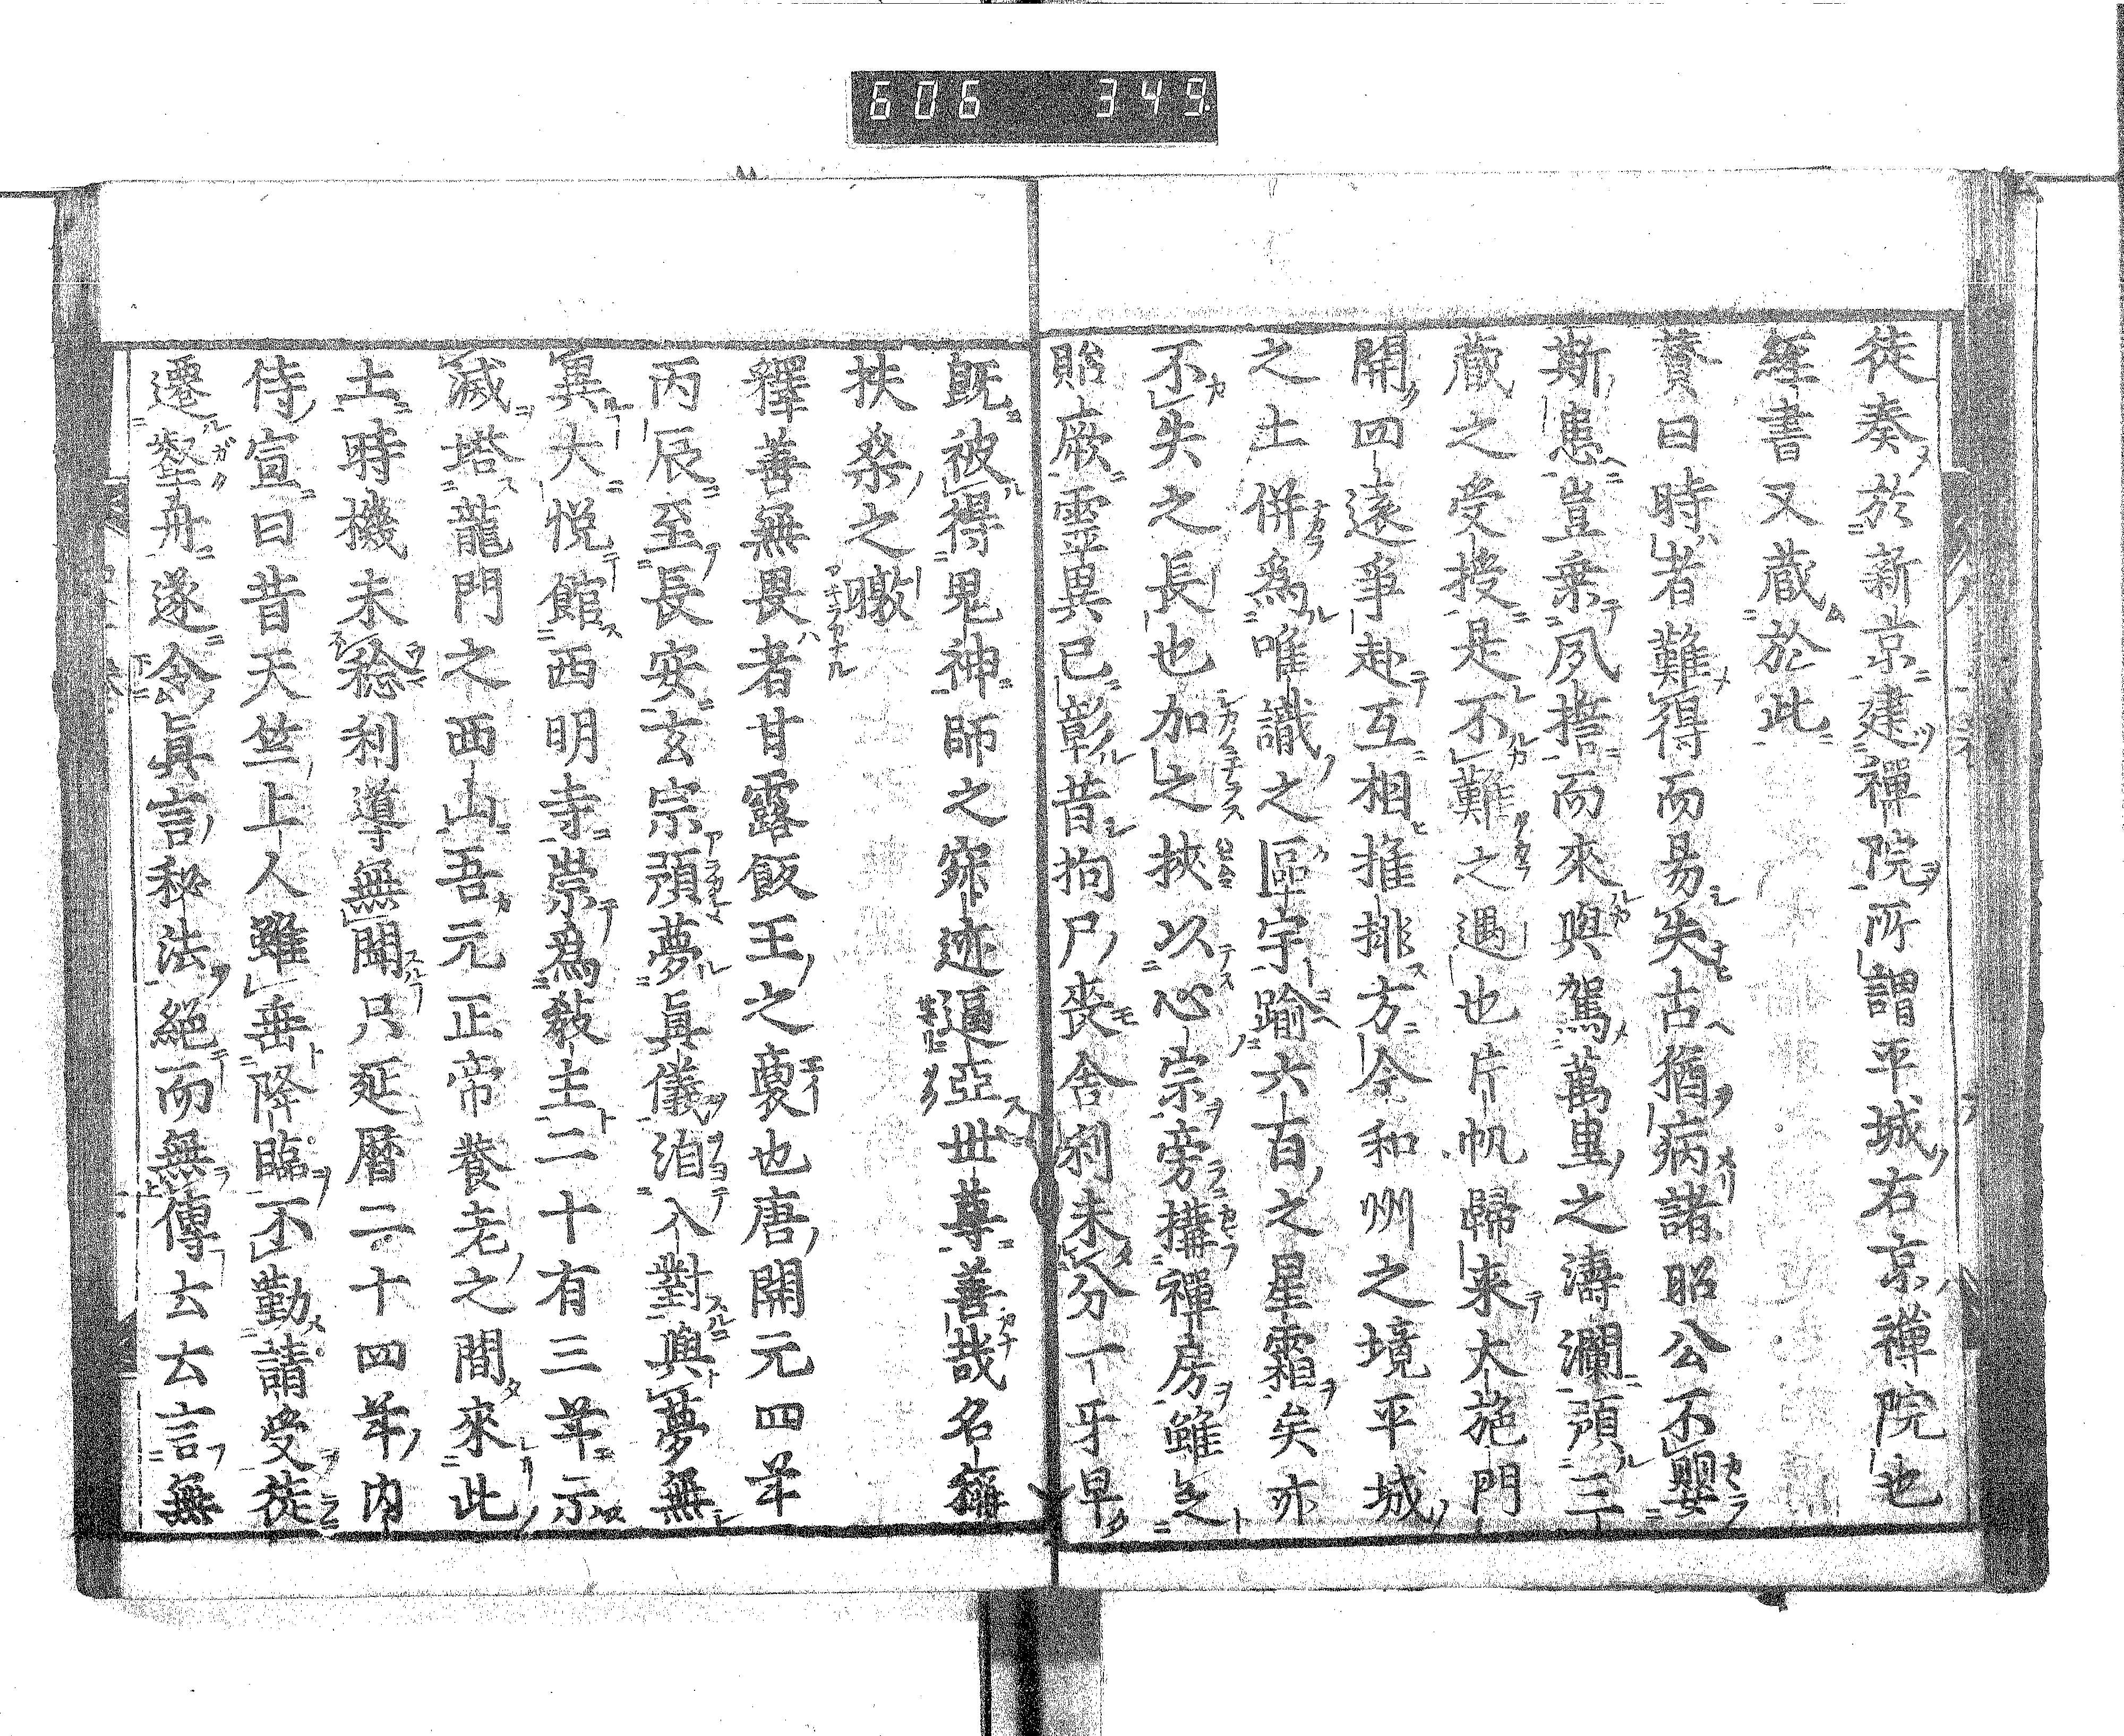 606 349
徒奏於新京建禪院所謂平城右京禪院也
經書又蔵於此
賛曰時者難得而易失古猶病諸昭公不嬰
斯患豈乗夙捨而來與駕萬里之濤瀾預三
蔵之受授是不難之遇也片帆歸来大施門
開四遠爭赴互相推排方今和州之境平城
之土併爲唯識之區宇踰六百之星霜矣亦
不失之長也加之挾以心宗旁搆禪房雖乏
貽厥靈異已彰昔拘尸喪舎利未分一牙早
既被得鬼神師之寂迹逼亞世尊善哉名稱
扶桑之暾
釋善無畏者甘露飯王之裔也唐開元四年
丙辰至長安玄宗預夢眞儀洎入對與夢無
異大悦館西明寺崇為教主二十有三年示
滅塔龍門之西山吾元正帝養老之間來此
土時機未稔利導無聞只延暦二十四年内
侍宣曰昔天竺上人雖垂降臨不勤請受徒
遷壑舟遂令眞言秘法絶而無傳云云言無